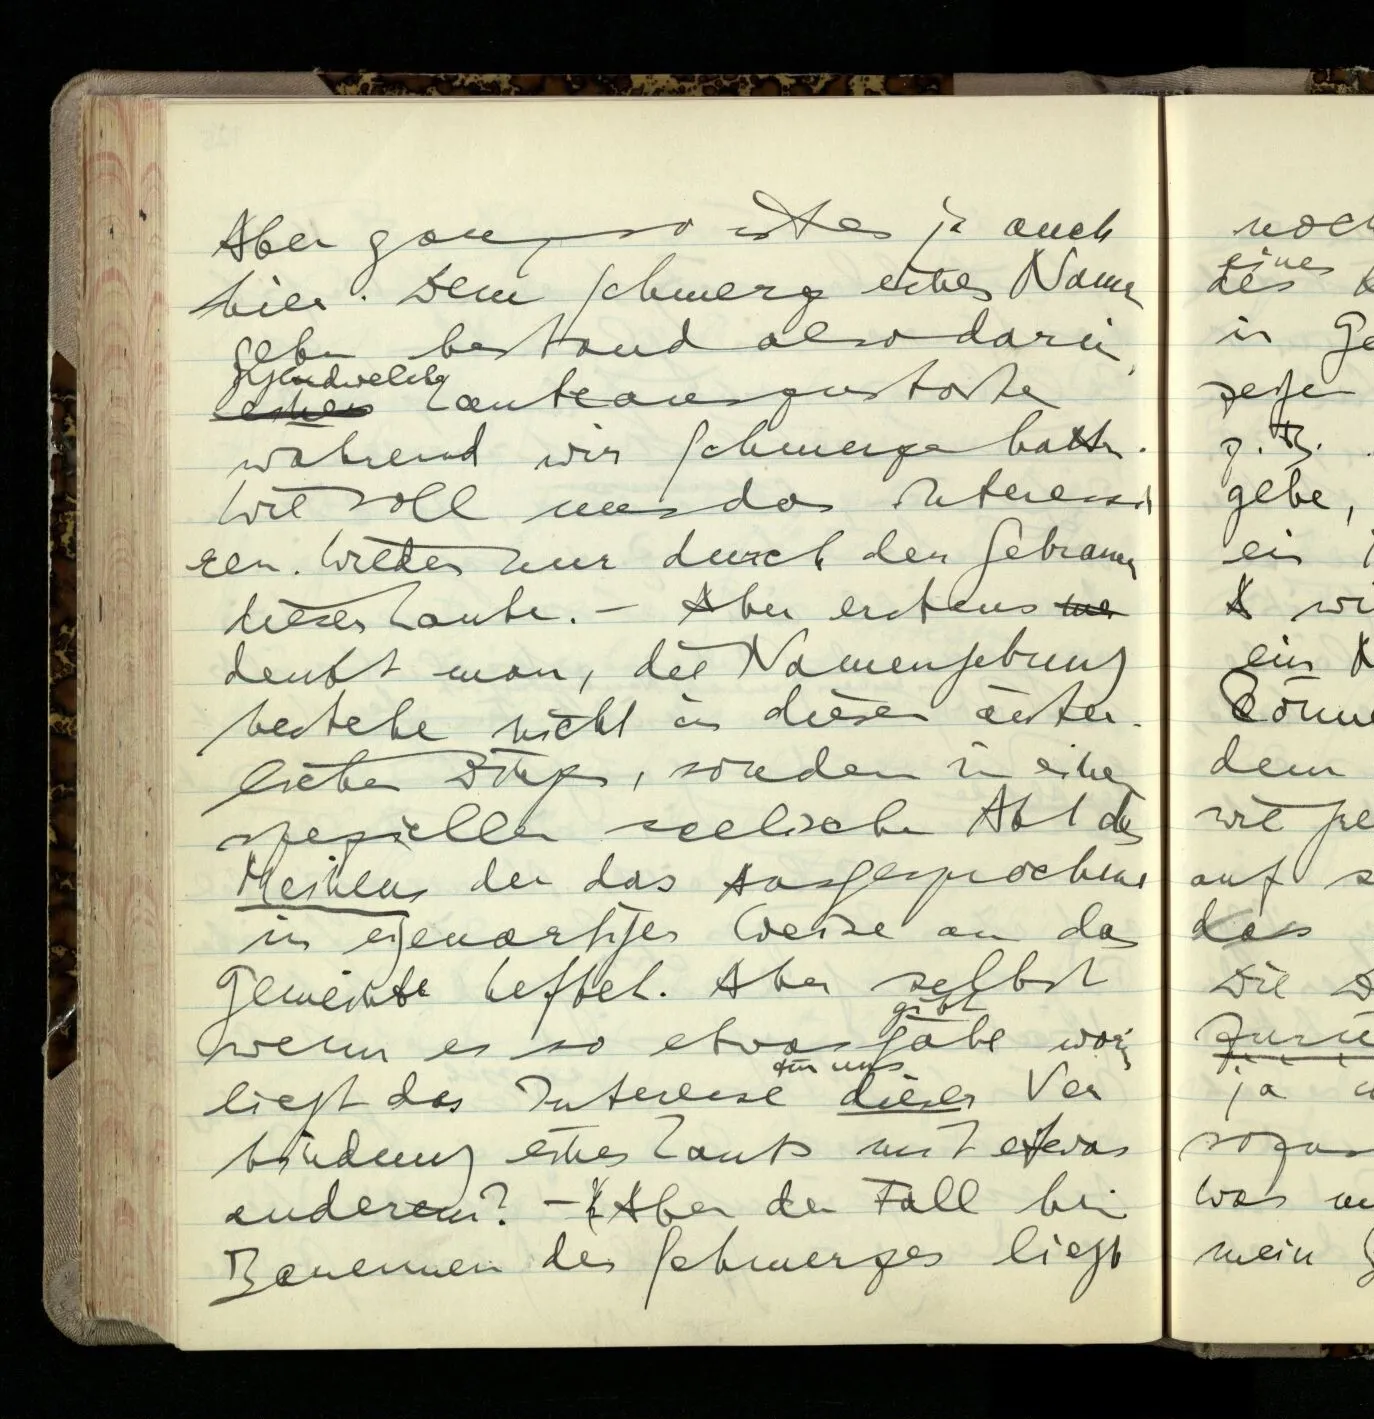 Aber ganz so ist es ja auch
hier. Dem Schmerz einen Namen
geben bestand also darin,
irgendwelche
einen Laute auszustoßen
während wir Schmerzen hatten.
Wie soll uns das interessie
ren. Wieder nur durch den Gebrauch
dieser Laute. – Aber erstens
denkt man, die Namengebung
bestehe nicht in diesen äußer-
lichen Dingen, sondern in einem
speziellen seelischen Akt des
Meinens der das Ausgesprochene
in eigenartiger Weise an das
Gemeinte heftet. Aber selbst
gibt
wenn es so etwas gäbe worin
für uns
liegt das Interesse dieser Ver
bindung eines Lauts mit etwas
anderem? – Aber der Fall beim
Benennen des Schmerzes liegt
noch
eines
des
in Ge
zeigen
z.B.
gebe,
ein
wi
ein
könne
dem
wie
auf s
das
Die D
Zurü
ja
sogar
was
mein